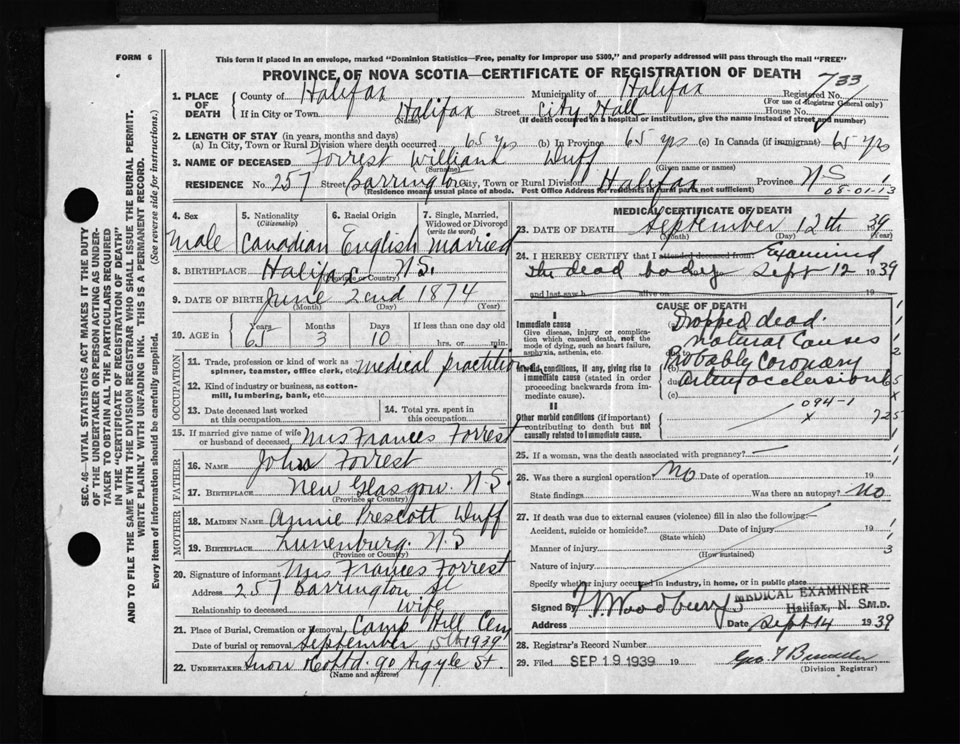 FORM 6
This form if placed in an envelope, marked "Dominion Statistics—Free, penalty for improper use $300," and properly addressed will pass through the mail "FREE"
PROVINCE OF NOVA SCOTIA—CERTIFICATE OF REGISTRATION OF DEATH
1. PLACE OF DEATH County of Halifax Municipality of Halifax Registered No. 733
(For use of Registrar General only)
If in City or Town Halifax Street City Hall House No.
(Name) (If death occurred in a hospital or institution, give the name instead of street and number)
2. LENGTH OF STAY (in years, months and days)
(a) In City, Town or Rural Division where death occurred 65 yrs (b) In Province 65 yrs (c) In Canada (if immigrant) 65 yrs
3. NAME OF DECEASED Forrest William Duff
(Surname) (Given name or names)
RESIDENCE No. 257 Street Barrington City, Town or Rural Division Halifax Province NS 1
(Residence means usual place of abode. Post Office Address for residents in rural parts not sufficient) 05-01-13
4. Sex
male
5. Nationality
(Citizenship)
Canadian
6. Racial Origin
English
7. Single, Married, Widowed or Divorced
(write the word)
married
8. BIRTHPLACE Halifax N.S.
(Province or Country)
9. DATE OF BIRTH June 2nd 1874
(Month) (Day) (Year)
10. AGE in Years Months Days If less than one day old
65 3 10 hrs. or min.
OCCUPATION
11. Trade, profession or kind of work as spinner, teamster, office clerk, etc. medical practition
12. Kind of industry or business, as cotton-mill, lumbering, bank, etc.
13. Date deceased last worked at this occupation
14. Total yrs. spent in this occupation
15. If married give name of wife or husband of deceased Mrs Frances Forrest
FATHER
16. Name John Forrest
17. Birthplace New Glasgow. N.S.
(Province or Country)
MOTHER
18. Maiden Name Annie Prescott Duff
19. Birthplace Lunenburg. N.S
(Province or Country)
20. Signature of informant Mrs Frances Forrest
Address 257 Barrington St
Relationship to deceased wife
21. Place of Burial, Cremation or Removal Camp Hill Cem
Date of burial or removal September 15th 1939
22. Undertaker Snow & Co Ltd. 90 Argyle St.
(Name and address)
MEDICAL CERTIFICATE OF DEATH
23. DATE OF DEATH September 12th 39
(Month) (Day) (Year)
24. I HEREBY CERTIFY that I attended deceased from Examined
the dead body Sept 12 1939
and last saw h alive on 19
CAUSE OF DEATH
I
Immediate cause
Give disease, injury or complication which caused death, not the mode of dying, such as heart failure, asphyxia, asthenia, etc.
Morbid conditions, if any, giving rise to immediate cause (stated in order proceeding backwards from immediate cause).
II
Other morbid conditions (if important) contributing to death but not causally related to immediate cause.
(a) Dropped dead.
natural causes
(b) Probably Coronary
due to
Artery occlusion
(c)
094-1
x 725
25. If a woman, was the death associated with pregnancy? —
26. Was there a surgical operation? No Date of operation 19
State findings Was there an autopsy? No
27. If death was due to external causes (violence) fill in also the following:—
Accident, suicide or homicide? Date of injury 19
(State which)
Manner of injury
(How sustained)
Nature of injury
Specify whether injury occurred in industry, in home, or in public place
Signed by Woodbury
MEDICAL EXAMINER
Halifax, N. S. M.D.
Address Date Sept 14 1939
28. Registrar's Record Number
29. Filed SEP 19 1939 19 Geo
(Division Registrar)
SEC. 46—VITAL STATISTICS ACT MAKES IT THE DUTY
OF THE UNDERTAKER OR PERSON ACTING AS UNDER-
TAKER TO OBTAIN ALL THE PARTICULARS REQUIRED
IN THE "CERTIFICATE OF REGISTRATION OF DEATH"
AND TO FILE THE SAME WITH THE DIVISION REGISTRAR WHO SHALL ISSUE THE BURIAL PERMIT.
WRITE PLAINLY WITH UNFADING INK. THIS IS A PERMANENT RECORD.
Every item of information should be carefully supplied. (See reverse side for instructions.)